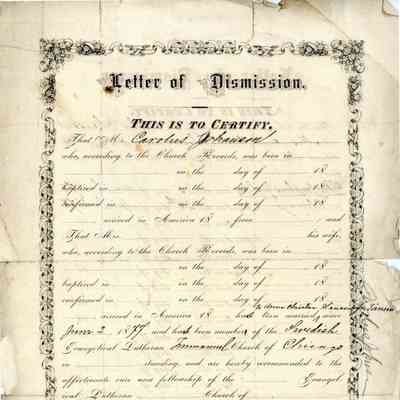 Letter of Dismission.
THIS IS TO CERTIFY,
That Mr. Carolus Johanson
who, according to the Church Records, was born in
in the day of 18
baptized in in the day of 18
confirmed in in the day of 18
arrived in America 18 , from , and
That Mrs. his wife,
who, according to the Church Records, was born in
in the day of 18
baptized in in the day of 18
confirmed in in the day of 18
arrived in America 18 had been married, since
June 2 1877 and has been member of the Swedish
Evangelical Lutheran Immanuel Church of Chicago
in standing, and are hereby recommended to the
affectionate care and fellowship of the Evangel-
ical Lutheran Church of